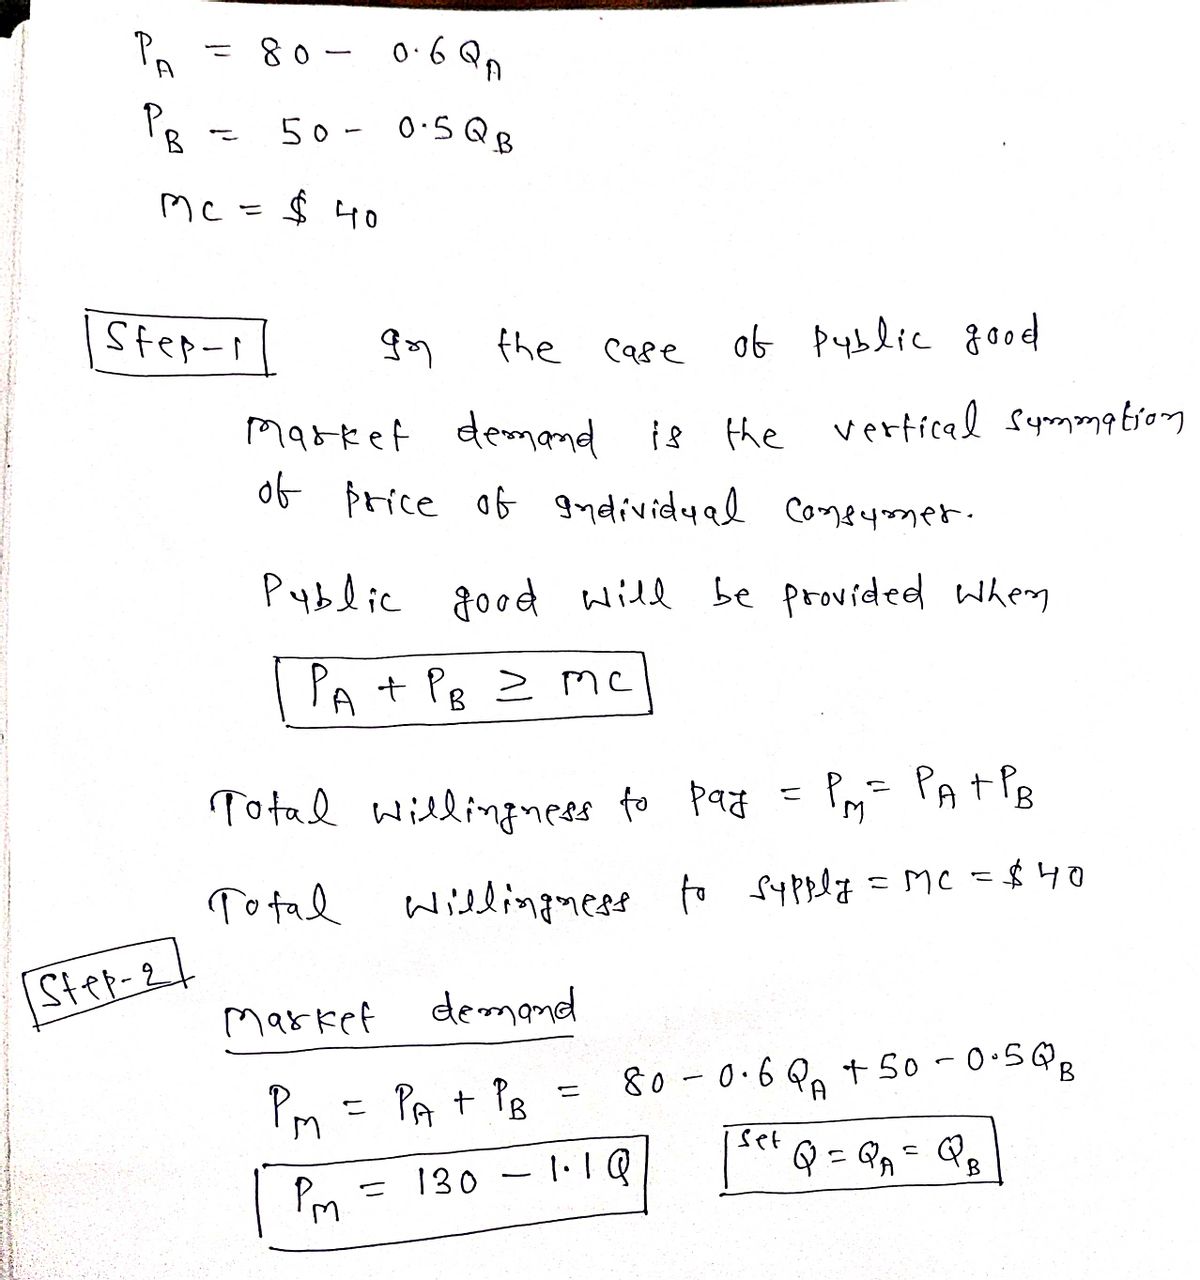 P_A = 80 - 0.6 Q_A
P_B = 50 - 0.5 Q_B
MC = $ 40
Step-1 In the case of public good
Market demand is the vertical summation
of price of individual consumer.
Public good will be provided when
P_A + P_B ≥ MC
Total willingness to pay = P_M = P_A + P_B
Total willingness to supply = MC = $ 40
Step-2
Market demand
P_M = P_A + P_B = 80 - 0.6 Q_A + 50 - 0.5 Q_B
P_M = 130 - 1.1 Q set Q = Q_A = Q_B